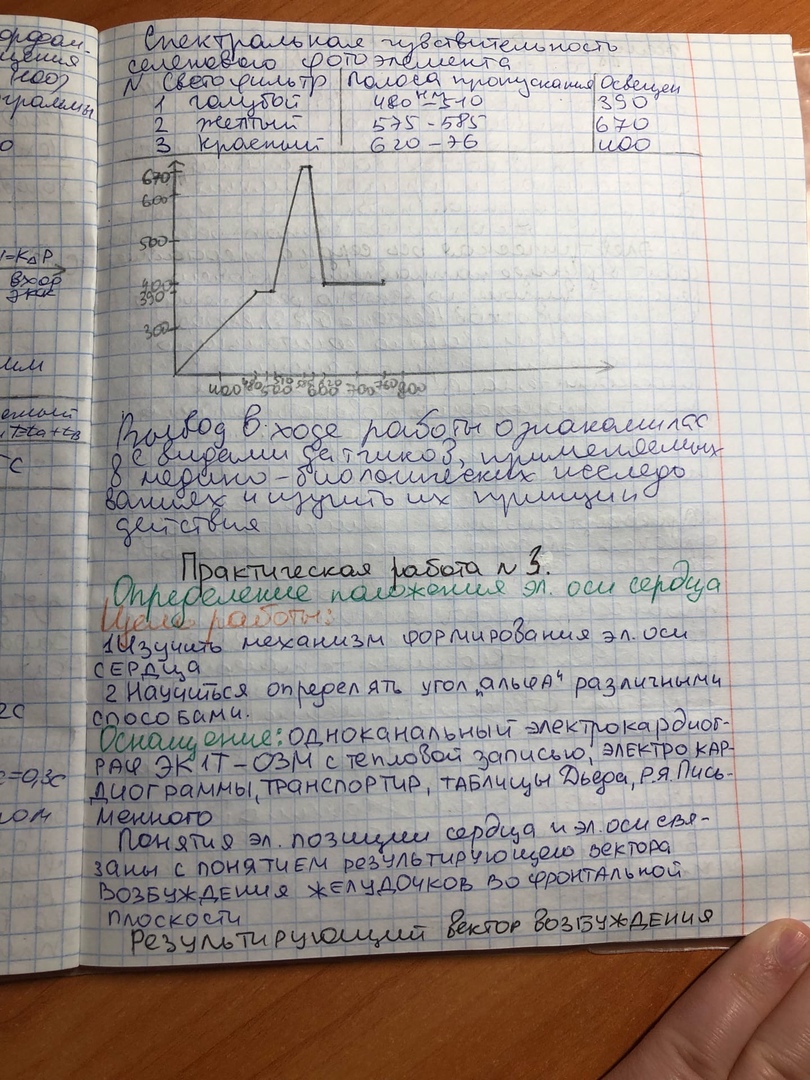 ордеан-
щения
(100)
граммы
Спектральная чувствительность
селенового фотоэлемента
N Светофильтр Полоса пропускания нм Освещен
1 голубой 480-510 390
2 желтый 575-585 670
3 красный 620-76 400
670
600
500
400
390
300
400 480 500 510 600 620 700 760 800
I=KΔP
вход
ЭКК
мм
T=ta+tв
°C
Вывод В ходе работы ознакомилась
с видами датчиков, применяемых
в медико-биологических исследо
ваниях и изучить их принцип
действия
Практическая работа N 3.
Определение положения эл. оси сердца
Цель работы:
1 Изучить механизм формирования эл. оси
сердца
2 Научиться определять угол "альфа" различными
способами.
Оснащение: одноканальный электрокардиог-
раф ЭК1Т-03М с тепловой записью, электрокар-
диограммы, транспортир, таблицы Дьеда, Р.Я. Пись-
менного
Понятия эл. позиции сердца и эл. оси свя-
заны с понятием результирующего вектора
возбуждения желудочков во фронтальной
плоскости
Результирующий вектор возбуждения
2С
с=0,3с
ном